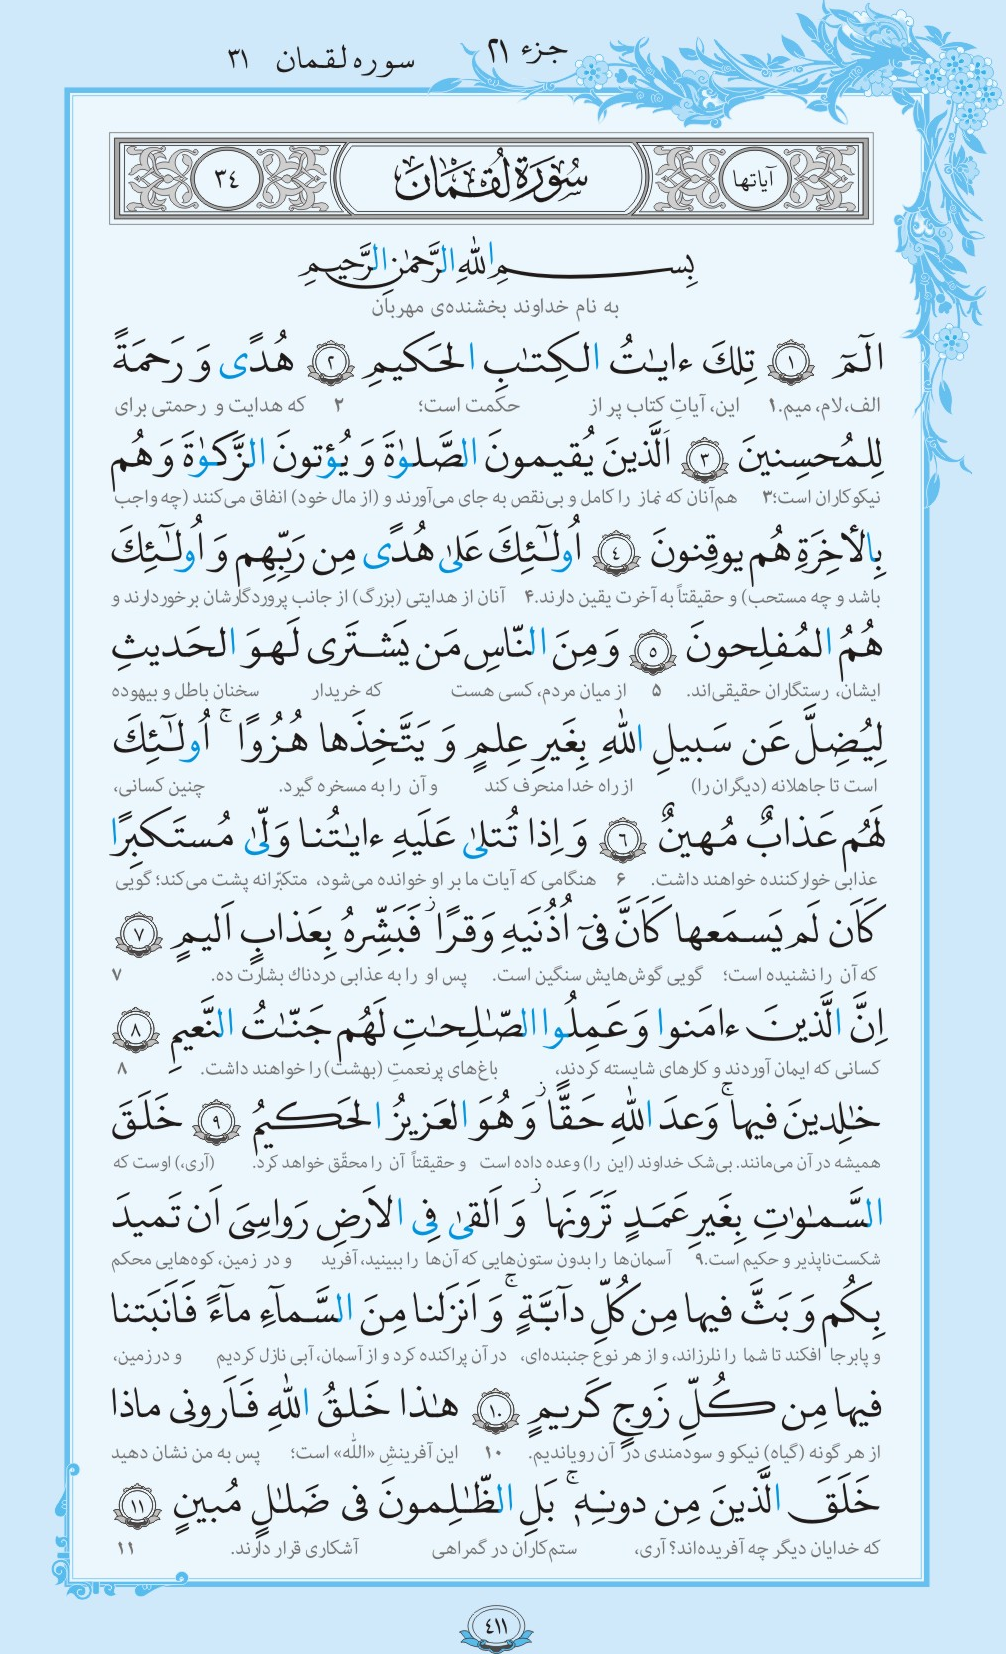 جزء ۲۱
سوره لقمان ۳۱
آیاتها
سُورَةُ لُقمَان
٣٤
بِسمِ اللّٰهِ الرَّحمٰنِ الرَّحیمِ
به نام خداوند بخشنده‌ی مهربان
الٓمٓ ﴿۱﴾ تِلكَ ءایٰتُ الكِتٰبِ الحَكیمِ ﴿۲﴾ هُدًی وَ رَحمَةً
الف، لام، میم.۱ این، آیاتِ کتاب پر از حکمت است؛ ۲ که هدایت و رحمتی برای
لِلمُحسِنینَ ﴿۳﴾ اَلَّذینَ یُقیمونَ الصَّلوٰةَ وَ یُؤتونَ الزَّكوٰةَ وَ هُم
نیکوکاران است؛۳ هم‌آنان که نماز را کامل و بی‌نقص به جای می‌آورند و (از مال خود) انفاق می‌کنند (چه واجب
بِالأخِرَةِ هُم یوقِنونَ ﴿٤﴾ اُولٰٓئِكَ عَلیٰ هُدًی مِن رَبِّهِم وَ اُولٰٓئِكَ
باشد و چه مستحب) و حقیقتاً به آخرت یقین دارند.۴ آنان از هدایتی (بزرگ) از جانب پروردگارشان برخوردارند و
هُمُ المُفلِحونَ ﴿۵﴾ وَ مِنَ النّاسِ مَن یَشتَری لَهوَ الحَدیثِ
ایشان، رستگاران حقیقی‌اند. ۵ از میان مردم، کسی هست که خریدار سخنان باطل و بیهوده
لِیُضِلَّ عَن سَبیلِ اللّٰهِ بِغَیرِ عِلمٍ وَ یَتَّخِذَها هُزُوًا ۚ اُولٰٓئِكَ
است تا جاهلانه (دیگران را) از راه خدا منحرف کند و آن را به مسخره گیرد. چنین کسانی،
لَهُم عَذابٌ مُهینٌ ﴿۶﴾ وَ اِذا تُتلیٰ عَلَیهِ ءایٰتُنا وَلّیٰ مُستَكبِرًا
عذابی خوارکننده خواهند داشت. ۶ هنگامی که آیات ما بر او خوانده می‌شود، متکبّرانه پشت می‌کند؛ گویی
كَاَن لَم یَسمَعها كَاَنَّ فیٓ اُذُنَیهِ وَقرًا ز فَبَشِّرهُ بِعَذابٍ اَلیمٍ ﴿۷﴾
که آن را نشنیده است؛ گویی گوش‌هایش سنگین است. پس او را به عذابی دردناك بشارت ده. ۷
اِنَّ الَّذینَ ءامَنوا وَ عَمِلُوا الصّٰلِحٰتِ لَهُم جَنّٰتُ النَّعیمِ ﴿۸﴾
کسانی که ایمان آوردند و کارهای شایسته کردند، باغ‌های پرنعمتِ (بهشت) را خواهند داشت. ۸
خٰلِدینَ فیها ۚ وَعدَ اللّٰهِ حَقًّا ز وَ هُوَ العَزیزُ الحَكیمُ ﴿۹﴾ خَلَقَ
همیشه در آن می‌مانند. بی‌شک خداوند (این را) وعده داده است و حقیقتاً آن را محقّق خواهد کرد. (آری،) اوست که
السَّمٰوٰتِ بِغَیرِ عَمَدٍ تَرَونَها ز وَ اَلقیٰ فِی الاَرضِ رَواسِیَ اَن تَمیدَ
شکست‌ناپذیر و حکیم است.۹ آسمان‌ها را بدون ستون‌هایی که آن‌ها را ببینید، آفرید و در زمین، کوه‌هایی محکم
بِكُم وَ بَثَّ فیها مِن كُلِّ دآبَّةٍ ۚ وَ اَنزَلنا مِنَ السَّمآءِ مآءً فَاَنبَتنا
و پابرجا افکند تا شما را نلرزاند، و از هر نوع جنبنده‌ای، در آن پراکنده کرد و از آسمان، آبی نازل کردیم و در زمین،
فیها مِن كُلِّ زَوجٍ كَریمٍ ﴿۱۰﴾ هٰذا خَلقُ اللّٰهِ فَاَرونی ماذا
از هر گونه (گیاه) نیکو و سودمندی در آن رویاندیم. ۱۰ این آفرینشِ «اللّه» است؛ پس به من نشان دهید
خَلَقَ الَّذینَ مِن دونِهٖ ۚ بَلِ الظّٰلِمونَ فی ضَلٰلٍ مُبینٍ ﴿۱۱﴾
که خدایان دیگر چه آفریده‌اند؟ آری، ستم‌کاران در گمراهی آشکاری قرار دارند. ۱۱
٤١١